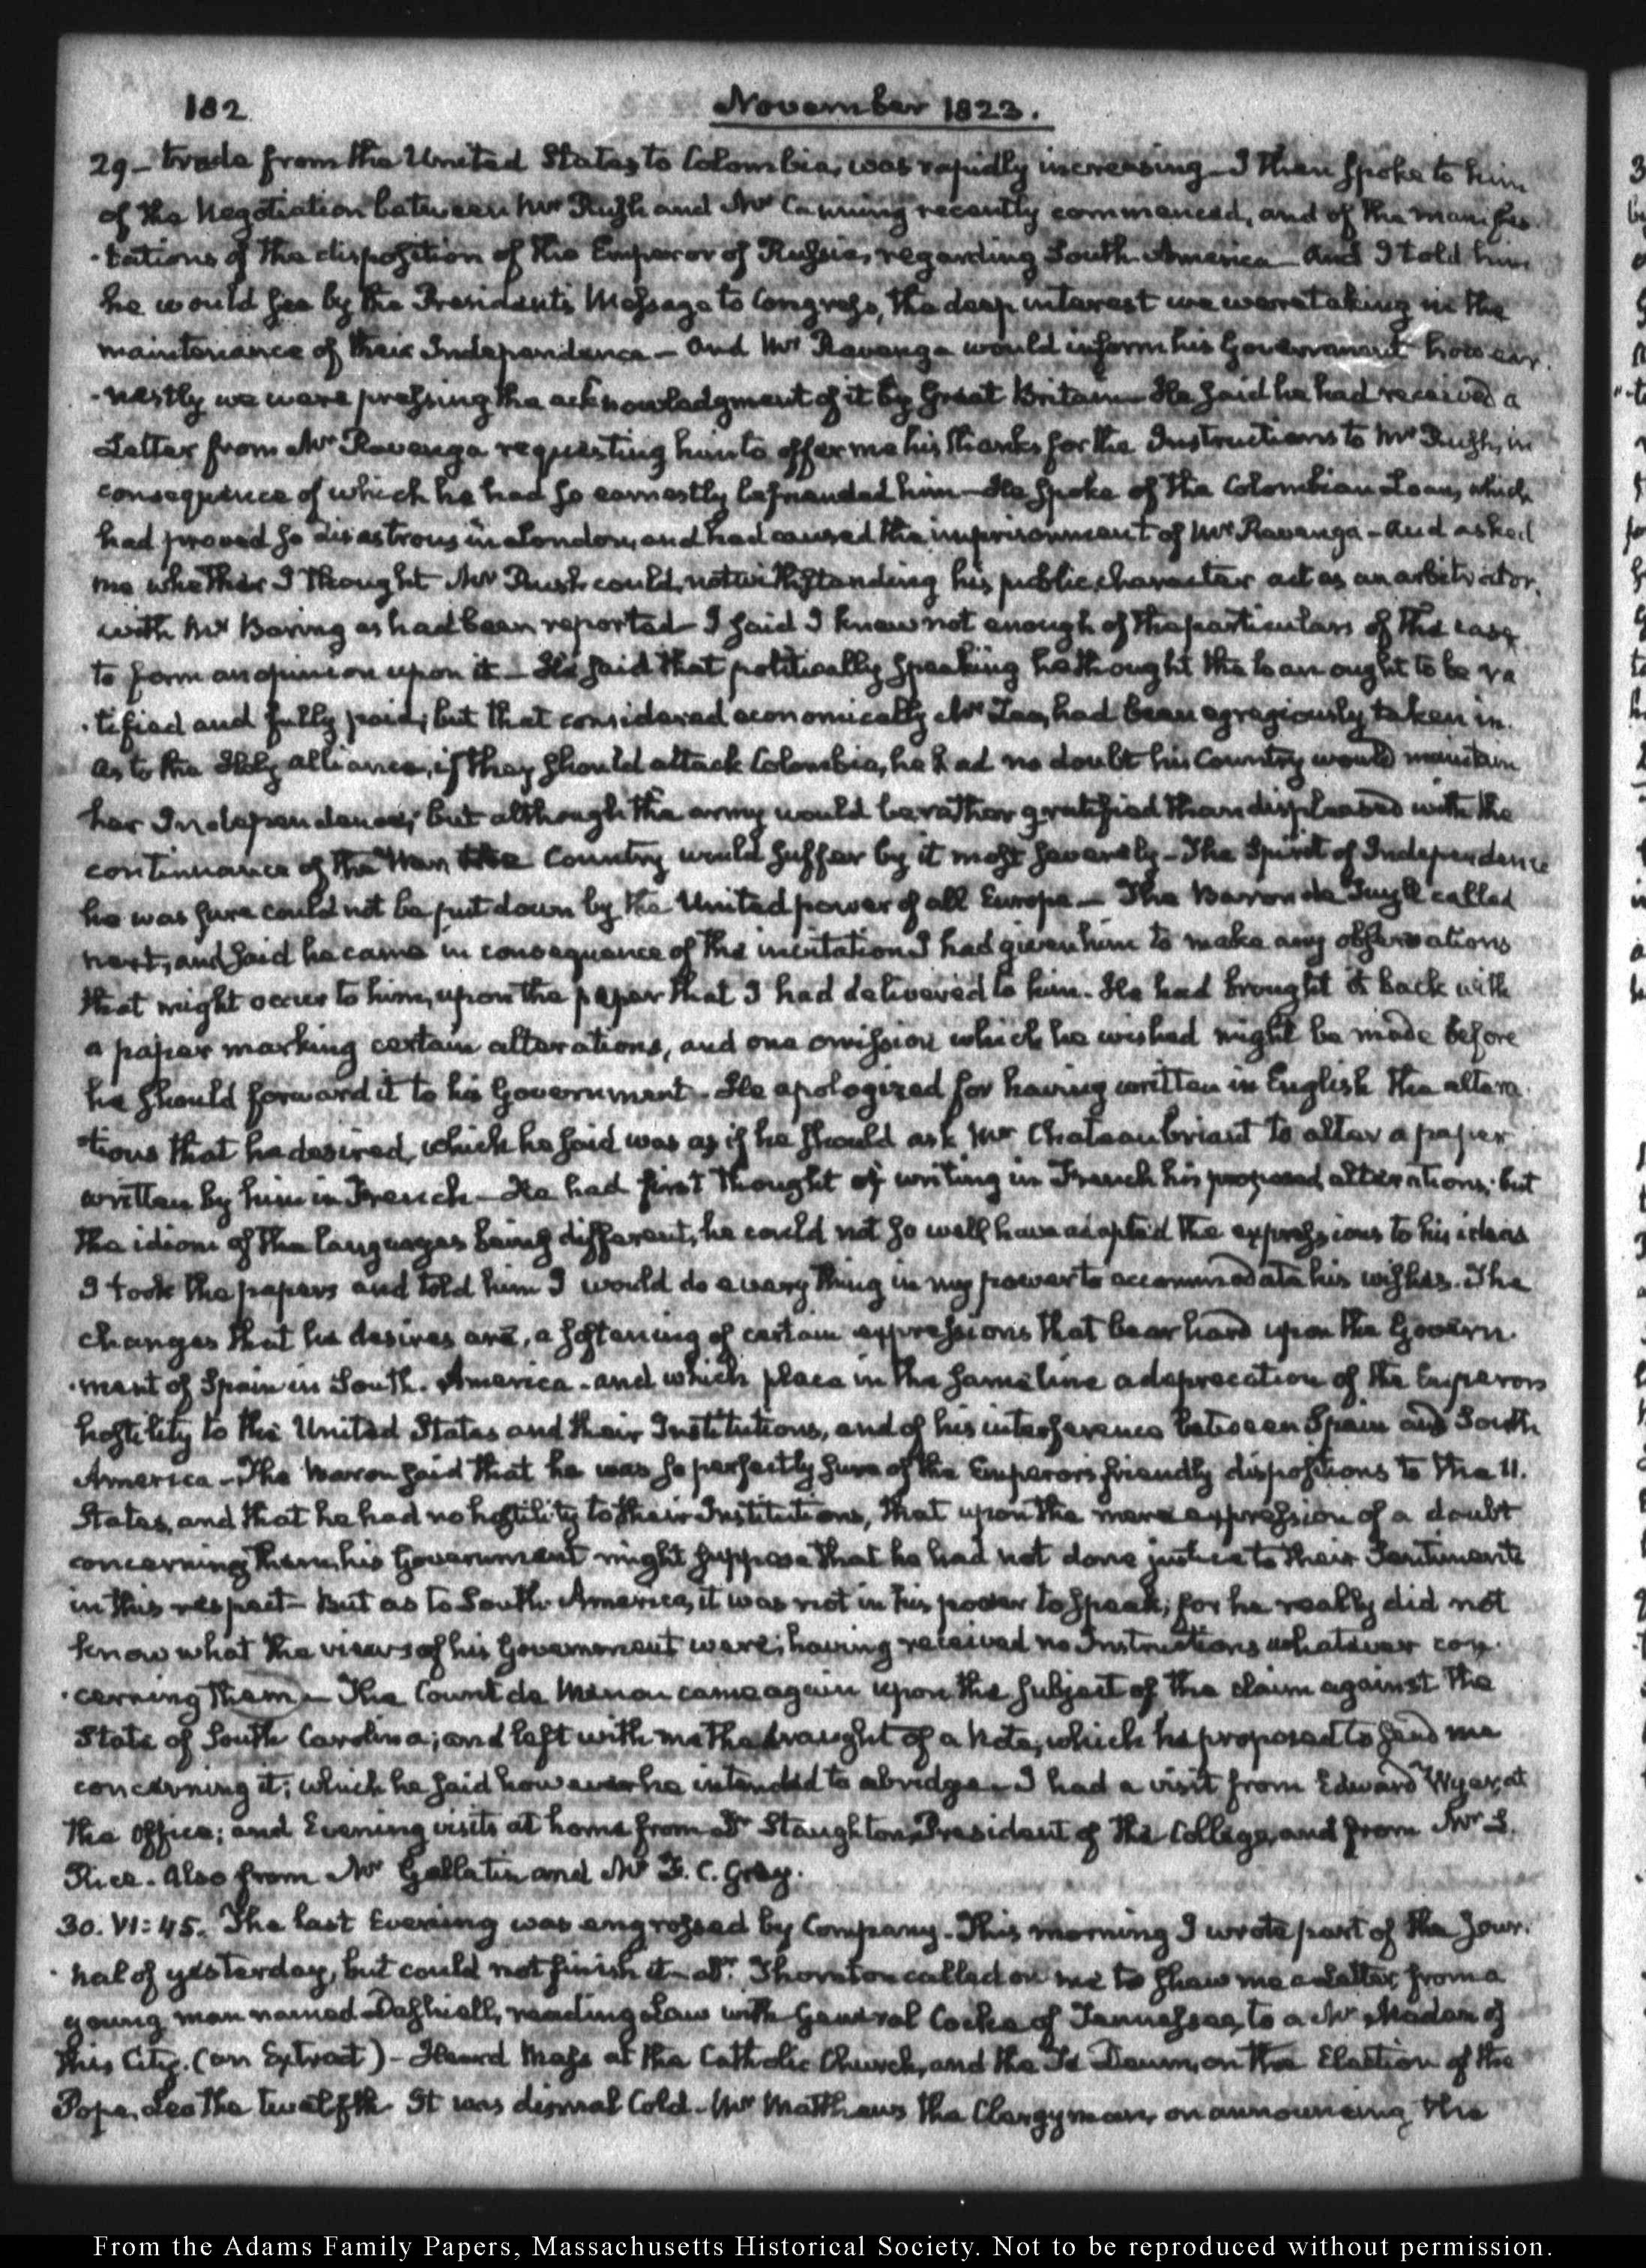 182
November 1823.
29 - trade from the United States to Colombia, was rapidly increasing - I then spoke to him
of the Negotiation between Mr Rush and Mr Canning recently commenced, and of the manifes-
-tations of the disposition of the Emperor of Russia, regarding South-America - And I told him
he would see by the President's Message to Congress, the deep interest we were taking in the
maintenance of their Independence - And Mr Ravenga would inform his Government how ear-
-nestly we were pressing the acknowledgment of it by Great Britain - He said he had received a
Letter from Mr Ravenga requesting him to offer me his thanks for the Instructions to Mr Rush, in
consequence of which he had so earnestly befriended him - He spoke of the Colombian Loan, which
had proved so disastrous in London, and had caused the imprisonment of Mr Ravenga - and asked
me whether I thought Mr Rush could, notwithstanding his public character act as an arbitrator,
with Mr Baring as had been reported - I said I knew not enough of the particulars of the case
to form an opinion upon it - He said that politically speaking he thought the loan ought to be ra
-tified and fully paid; but that considered economically Mr Zea, had been egregiously taken in.
As to the Holy alliance, if they should attack Colombia, he had no doubt his Country would maintain
her Independence; but although the army would be rather gratified than displeased with the
continuance of the War, the Country would suffer by it most severely - The Spirit of Independence
he was sure could not be put down by the United power of all Europe - The Baron de Tuyll called
next, and said he came in consequence of the invitation I had given him to make any observations
that might occur to him, upon the paper that I had delivered to him. He had brought it back with
a paper marking certain alterations, and one omission which he wished might be made before
he should forward it to his Government - He apologized for having written in English the altera-
-tions that he desired, which he said was as if he should ask Mr Chateaubriant to alter a paper
written by him in French - He had first thought of writing in French his proposed alterations; but
the idiom of the languages being different, he could not so well have adapted the expressions to his ideas
I took the papers and told him I would do every thing in my power to accommodate his wishes. The
changes that he desires are, a softening of certain expressions that bear hard upon the Govern-
-ment of Spain in South-America - and which place in the same line a deprecation of the Emperors
hostility to the United States and their Institutions, and of his interference between Spain and South
America - The Baron said that he was so perfectly sure of the Emperor's friendly dispositions to the U.
States, and that he had no hostility to their Institutions, that upon the mere expression of a doubt
concerning them, his Government might suppose that he had not done justice to their Sentiments
in this respect - But as to South-America, it was not in his power to speak; for he really did not
know what the views of his Government were; having received no Instructions whatever con-
-cerning them - The Count de Menou came again upon the subject of the claim against the
State of South Carolina; and left with me the draught of a Note, which he proposed to send me
concerning it; which he said however he intended to abridge - I had a visit from Edward Wyer, at
the Office; and Evening visits at home from Dr Staughton, President of the College, and from Mr L.
Rice. Also from Mr Gallatin and Mr F. C. Gray.
30. VI: 45. The last Evening was engrossed by Company. This morning I wrote part of the Jour-
-nal of yesterday, but could not finish it - Dr Thornton called on me to shew me a Letter, from a
young man named Dashiell, reading Law with General Cocke of Tennessee, to a Mr of
this City. (an Extract) - Heard Mass at the Catholic Church, and the Te Deum, on the Election of the
Pope, Leo the twelfth. It was dismal Cold. Mr Matthews the Clergyman, on announcing the
From the Adams Family Papers, Massachusetts Historical Society. Not to be reproduced without permission.